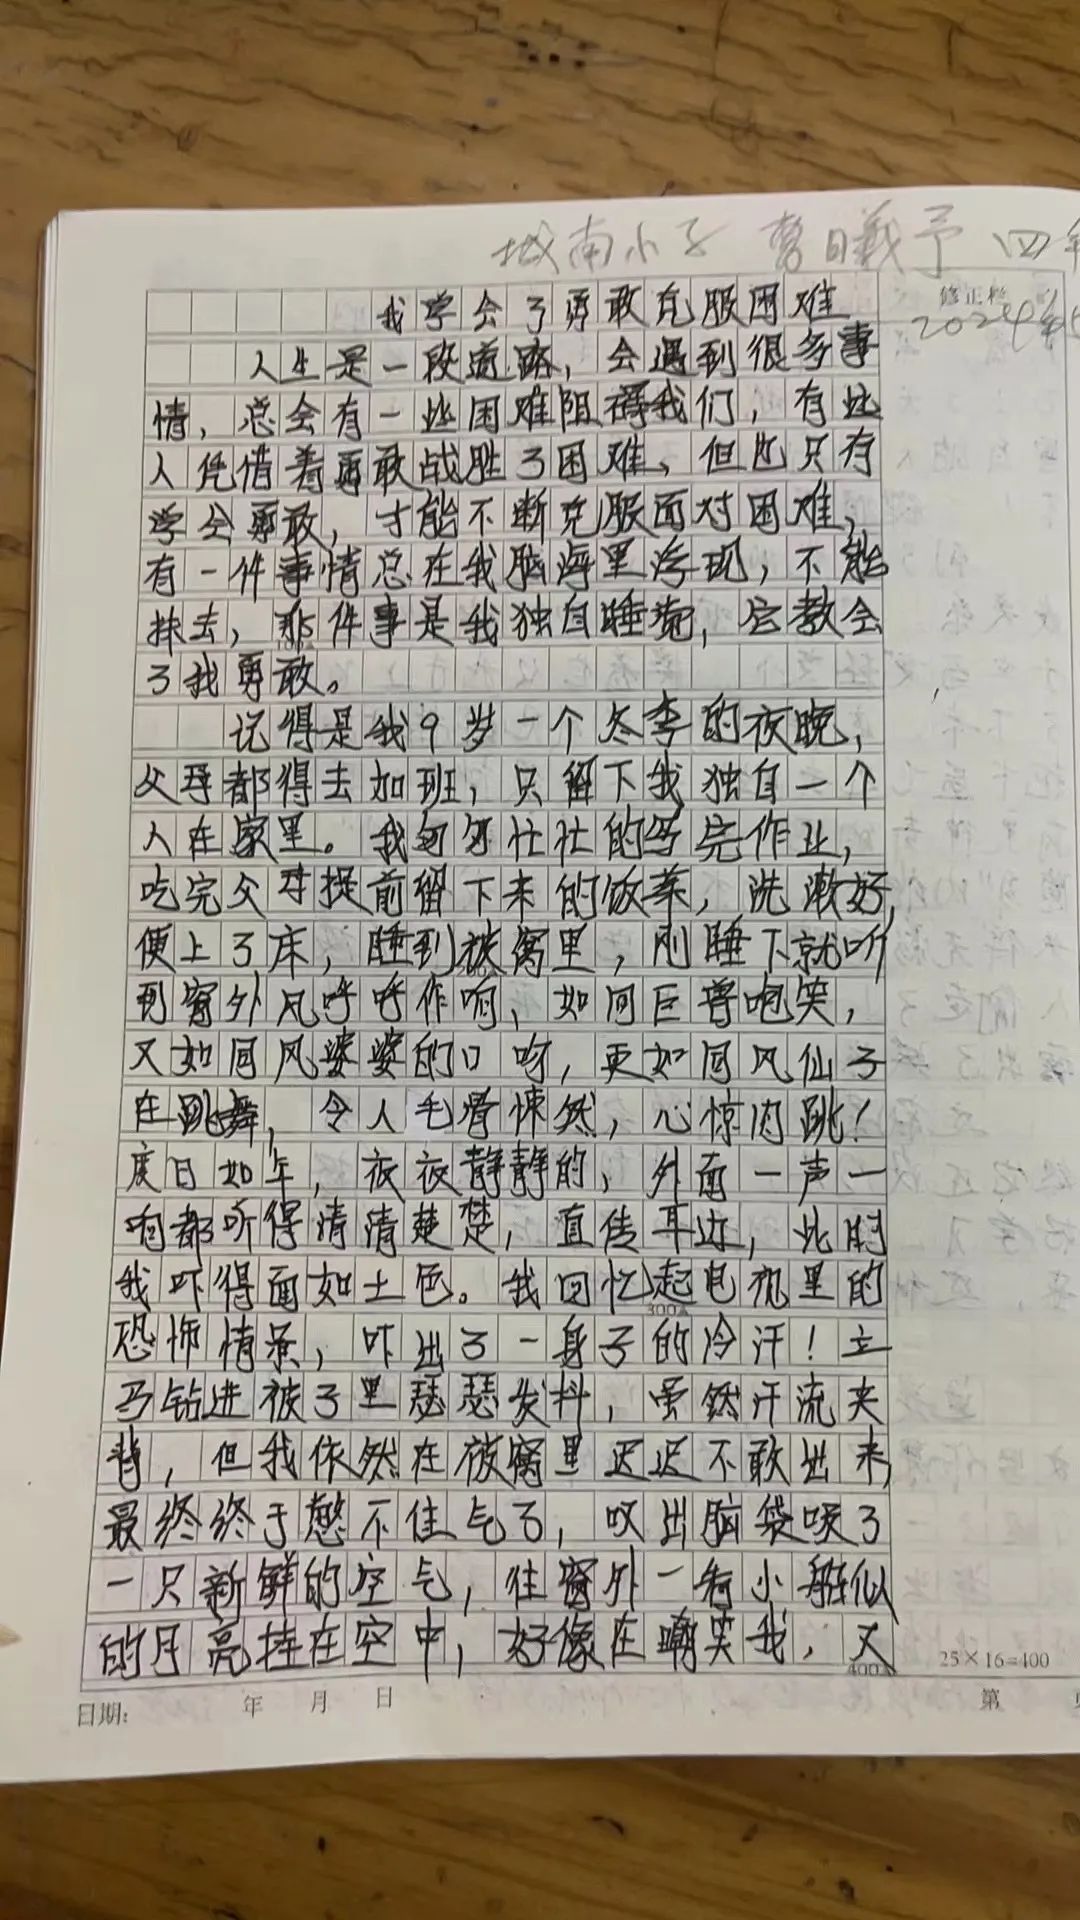 城南小学 曹曦予 四年
修正栏
2024年
我学会了勇敢克服困难
人生是一段道路，会遇到很多事
情，总会有一些困难阻碍我们，有些
人凭借着勇敢战胜了困难，但也只有
学会勇敢，才能不断克服面对困难，
有一件事情总在我脑海里浮现，不能
抹去，那件事是我独自睡觉，它教会
了我勇敢。
记得是我9岁一个冬季的夜晚，
父母都得去加班，只留下我独自一个
人在家里。我匆匆忙忙的写完作业，
吃完父母提前留下来的饭菜，洗漱好，
便上了床，睡到被窝里，刚睡下就听
到窗外风呼呼作响，如同巨兽咆笑，
又如同风婆婆的口哨，更如同风仙子
在跳舞，令人毛骨悚然，心惊肉跳！
度日如年，夜夜静静的，外面一声一
响都听得清清楚楚，直传耳边，此时
我吓得面如土色。我回忆起电视里的
恐怖情景，吓出了一身子的冷汗！立
马钻进被子里瑟瑟发抖，虽然汗流夹
背，但我依然在被窝里迟迟不敢出来，
最终终于憋不住气了，叹出脑袋唤了
一只新鲜的空气，往窗外一看小船似
的月亮挂在空中，好像在嘲笑我，又
25×16=400
日期： 年 月 日 第